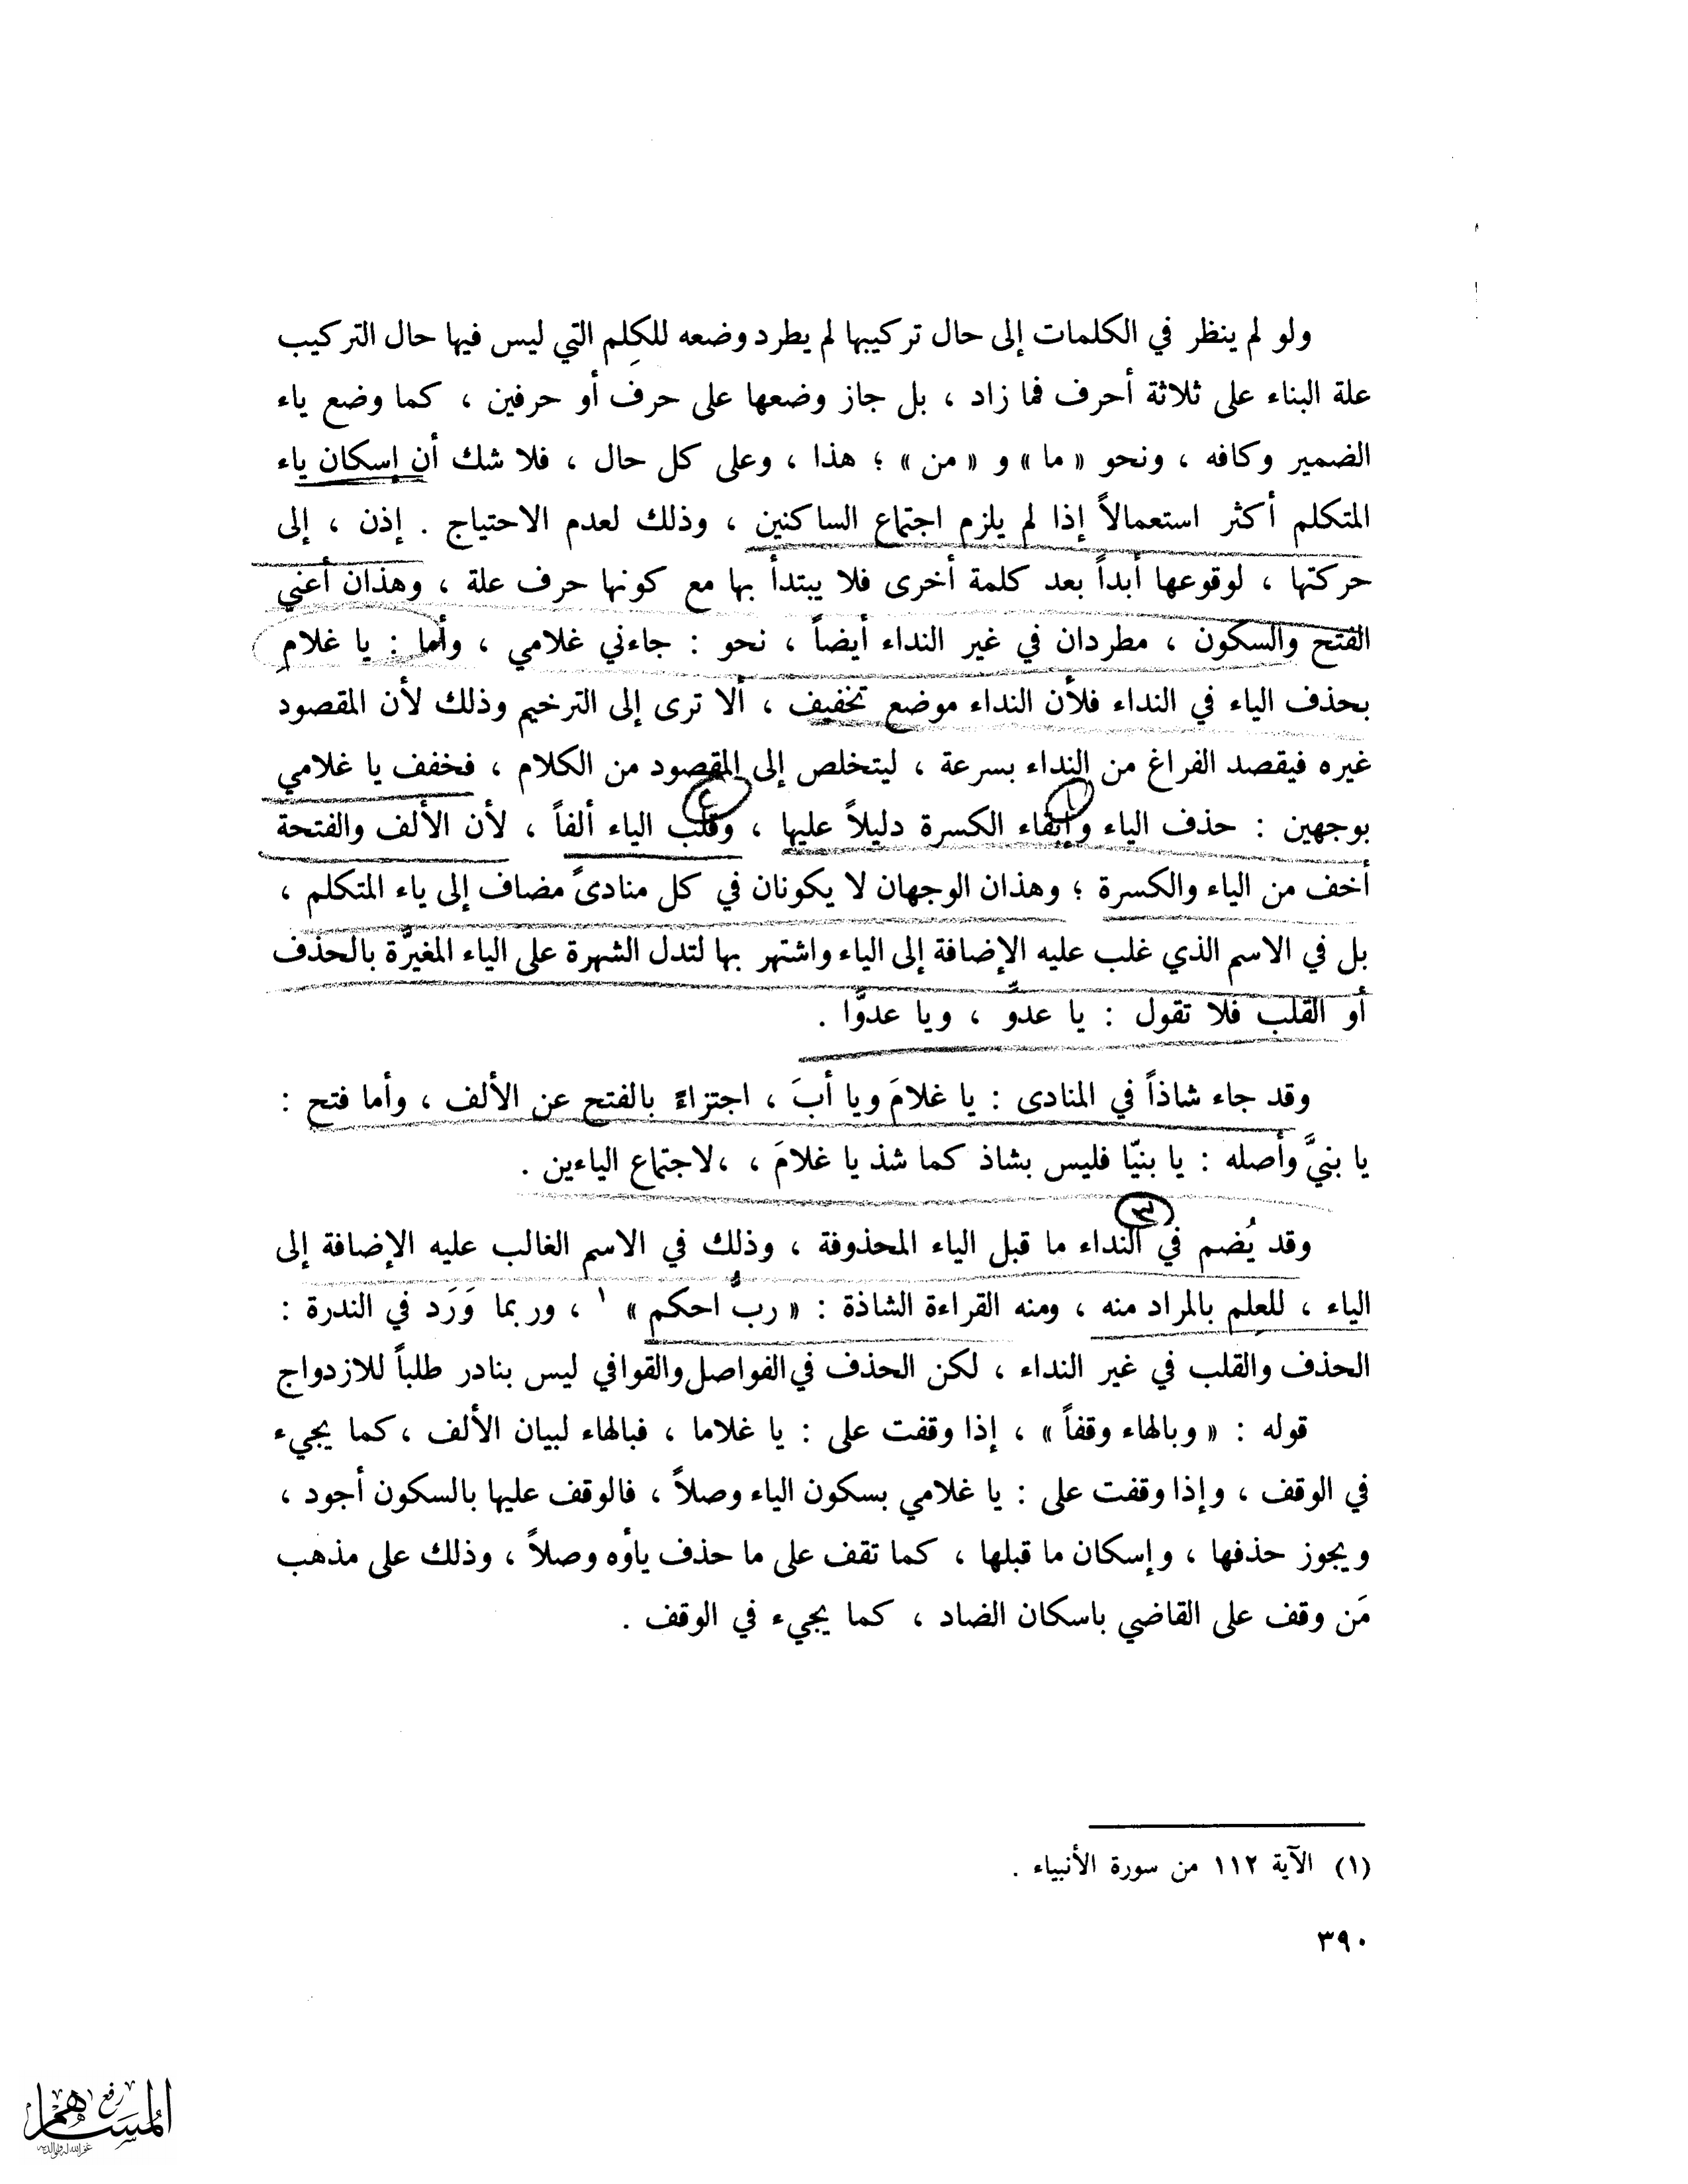 ولو لم ينظر في الكلمات إلى حال تركيبها لم يطرد وضعه للكلِم التي ليس فيها حال التركيب
علة البناء على ثلاثة أحرف فما زاد ، بل جاز وضعها على حرف أو حرفين ، كما وضع ياء
الضمير وكافه ، ونحو « ما » و « من » ؛ هذا ، وعلى كل حال ، فلا شك أن إسكان ياء
المتكلم أكثر استعمالاً إذا لم يلزم اجتماع الساكنين ، وذلك لعدم الاحتياج . إذن ، إلى
حركتها ، لوقوعها أبداً بعد كلمة أخرى فلا يبتدأ بها مع كونها حرف علة ، وهذان أعني
الفتح والسكون ، مطردان في غير النداء أيضاً ، نحو : جاءني غلامي ، وأما : يا غلامِ
بحذف الياء في النداء فلأن النداء موضع تخفيف ، ألا ترى إلى الترخيم وذلك لأن المقصود
غيره فيقصد الفراغ من النداء بسرعة ، ليتخلص إلى المقصود من الكلام ، فخفف يا غلامي
بوجهين : حذف الياء وإبقاء الكسرة دليلاً عليها ، وقلب الياء ألفاً ، لأن الألف والفتحة
أخف من الياء والكسرة ؛ وهذان الوجهان لا يكونان في كل منادىً مضاف إلى ياء المتكلم ،
بل في الاسم الذي غلب عليه الإضافة إلى الياء واشتهر بها لتدل الشهرة على الياء المغيَّرة بالحذف
أو القلب فلا تقول : يا عدوِّ ، ويا عدوَّا .
وقد جاء شاذاً في المنادى : يا غلامَ ويا أبَ ، اجتزاءً بالفتح عن الألف ، وأما فتح :
يا بنيَّ وأصله : يا بنيّا فليس بشاذ كما شذ يا غلامَ ، ،لاجتماع الياءين .
وقد يُضم في النداء ما قبل الياء المحذوفة ، وذلك في الاسم الغالب عليه الإضافة إلى
الياء ، للعِلم بالمراد منه ، ومنه القراءة الشاذة : « ربُّ احكم » ١ ، وربما وَرَد في الندرة :
الحذف والقلب في غير النداء ، لكن الحذف في الفواصل والقوافي ليس بنادر طلباً للازدواج
قوله : « وبالهاء وقفاً » ، إذا وقفت على : يا غلاما ، فبالهاء لبيان الألف ، كما يجيء
في الوقف ، وإذا وقفت على : يا غلامي بسكون الياء وصلاً ، فالوقف عليها بالسكون أجود ،
ويجوز حذفها ، وإسكان ما قبلها ، كما تقف على ما حذف ياؤه وصلاً ، وذلك على مذهب
مَن وقف على القاضي باسكان الضاد ، كما يجيء في الوقف .
(١) الآية ١١٢ من سورة الأنبياء .
٣٩٠